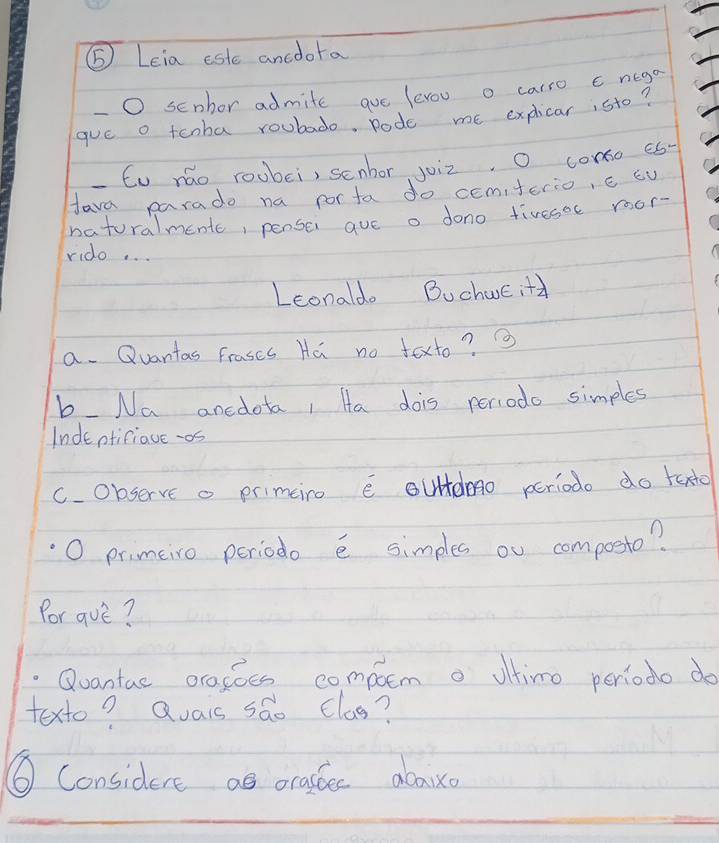 ⑤ Leia este anedota
- O senhor admite que levou o carro e nega
que o tenha roubado. Pode me explicar isto?
- Eu não roubei, senhor juiz. O carro es-
tava parado na porta do cemiterio, e eu
naturalmente, pensei que o dono tivesse mor-
rido...
Leonaldo Buchweitz
a- Quantas frases Há no texto? 3
b- Na anedota, Ha dois periodo simples
Indentifique-os
C- Observe o primeiro é período do texto
• O primeiro período é simples ou composto?
Por quê?
• Quantas orações compõem o último período do
texto? Quais são Elas?
⑥ Considere as orações abaixo